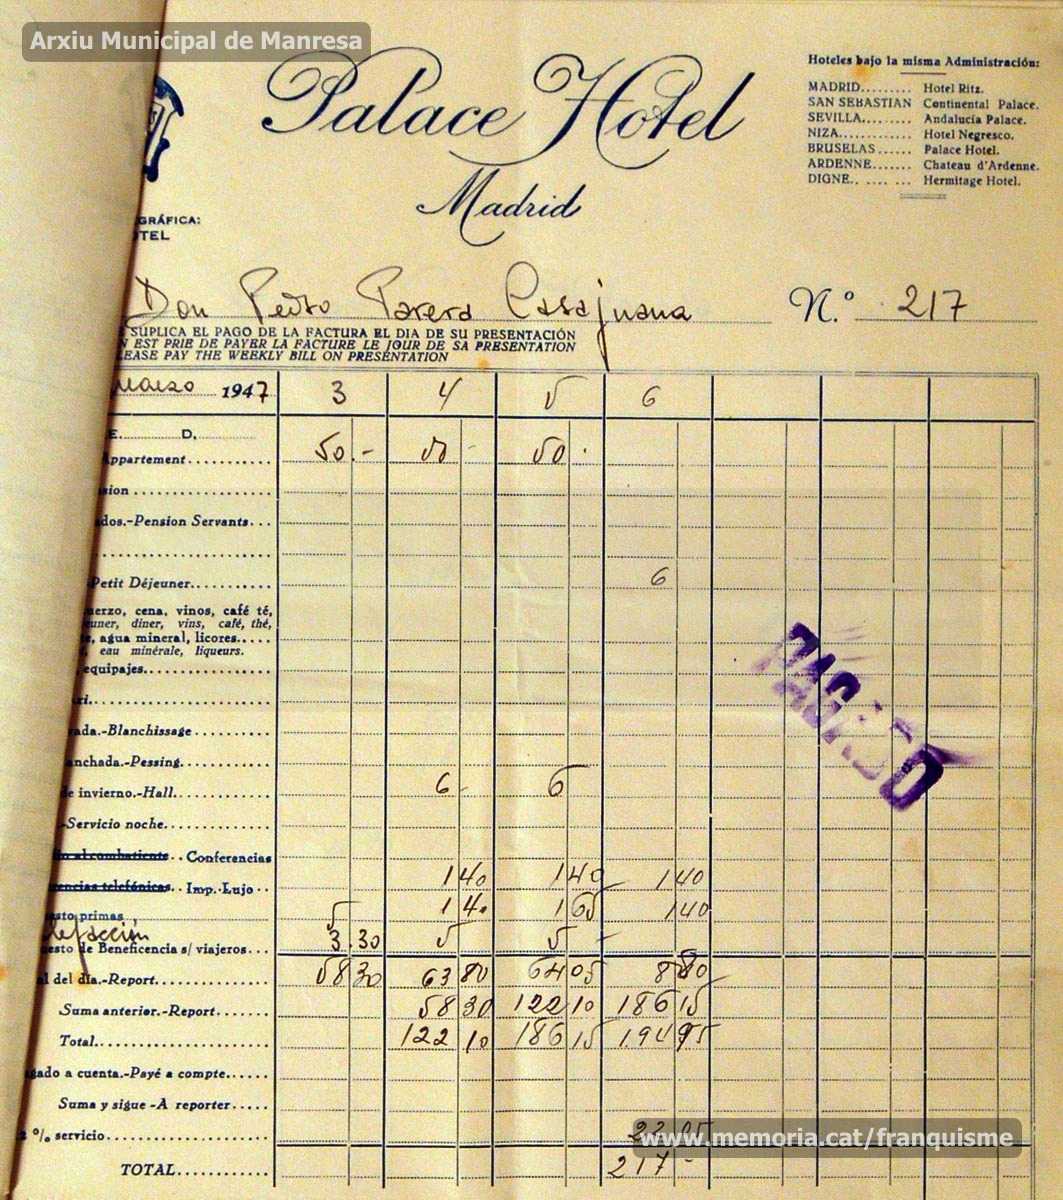 Arxiu Municipal de Manresa
Palace Hotel
Madrid
Hoteles bajo la misma Administración:
MADRID......... Hotel Ritz.
SAN SEBASTIAN Continental Palace.
SEVILLA........ Andalucía Palace.
NIZA............ Hotel Negresco.
BRUSELAS...... Palace Hotel.
ARDENNE....... Chateau d'Ardenne.
DIGNE.. .. .... ... Hermitage Hotel.
GRÁFICA:
OTEL
Don Pedro Parera Casajuana N.º 217
SUPLICA EL PAGO DE LA FACTURA EL DIA DE SU PRESENTACIÓN
N EST PRIE DE PAYER LA FACTURE LE JOUR DE SA PRESENTATION
LEASE PAY THE WEEKLY BILL ON PRESENTATION
marzo 1947 3 4 5 6
E. D.
Appartement 50.- 50 - 50 .
sion
dos.-Pension Servants
Petit Déjeuner 6
uerzo, cena, vinos, café té,
euner, diner, vins, café, thé,
, agua mineral, licores
, eau minérale, liqueurs.
equipajes
xi.
ada.-Blanchissage
anchada.-Pessing.
de invierno.-Hall. 6- 6
.-Servicio noche.
al combatiente Conferencias
encias telefónicas. Imp. Lujo 1 40 1 40 1 40
sto primas 5 1 40 1 65 1 40
lefacción
esto de Beneficencia s/ viajeros 3.30 5 5 -
al del día.-Report 58 30 63 80 64 05 8 80
Suma anterior.-Report 58 30 122 10 186 15
Total 122 10 186 15 194 95
gado a cuenta.-Payé a compte
Suma y sigue-A reporter
2 % servicio 22 05
TOTAL 217 -
PAGADO
www.memoria.cat/franquisme